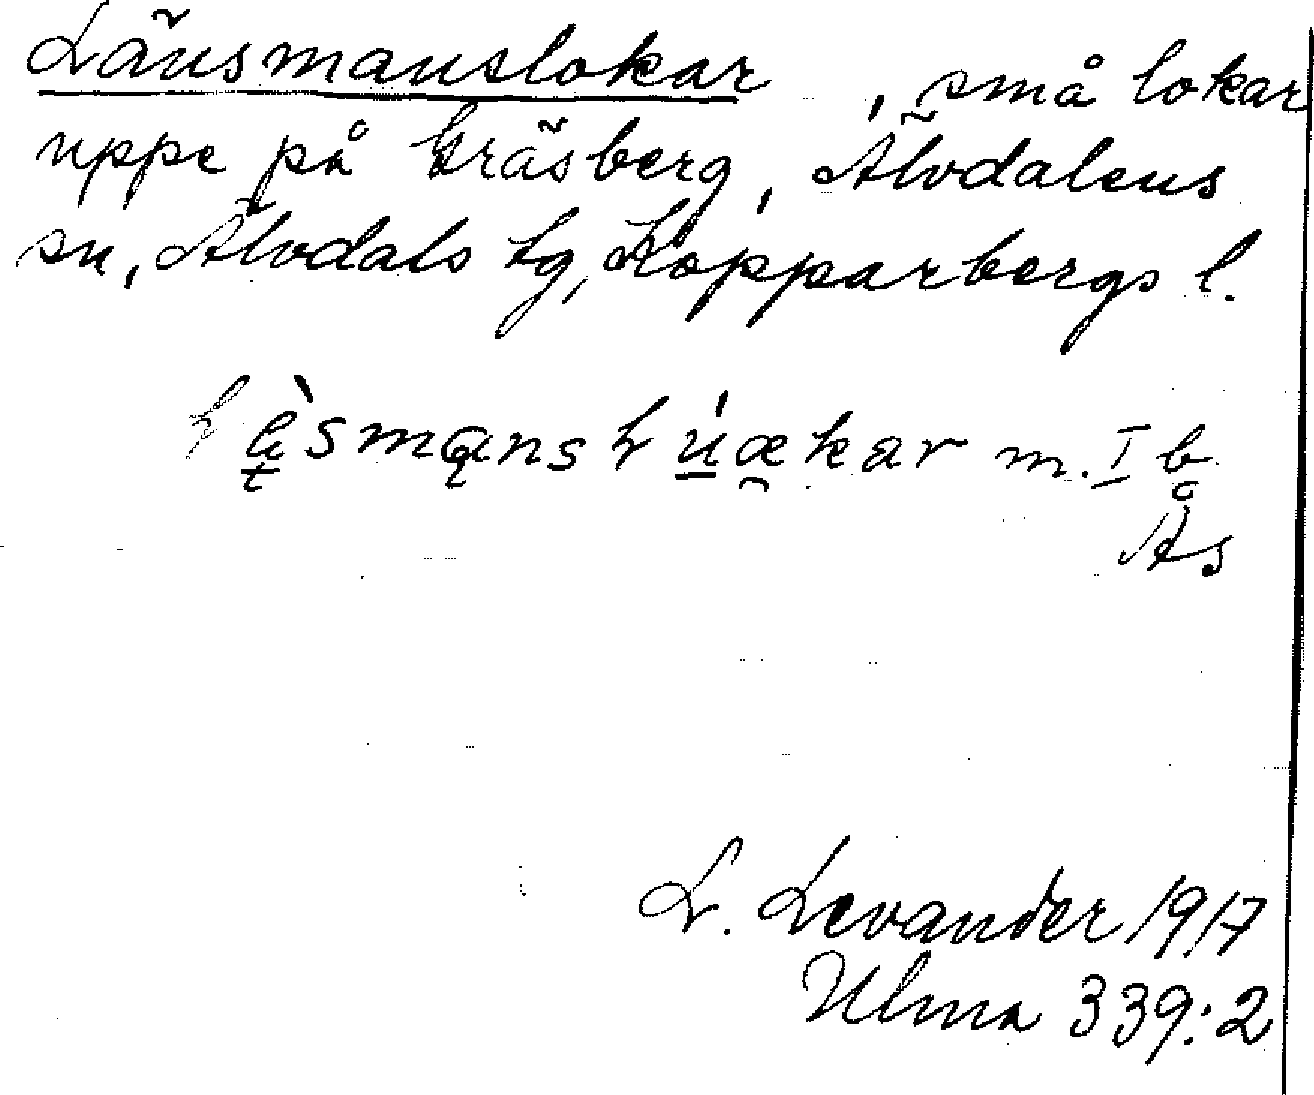 Länsmanslokar , små lokar
uppe på Gräsberg, Älvdalens
sn, Älvdals tg, Kopparbergs l.
m. I b
Ås
L. Levander 1917
Ulma 339:2